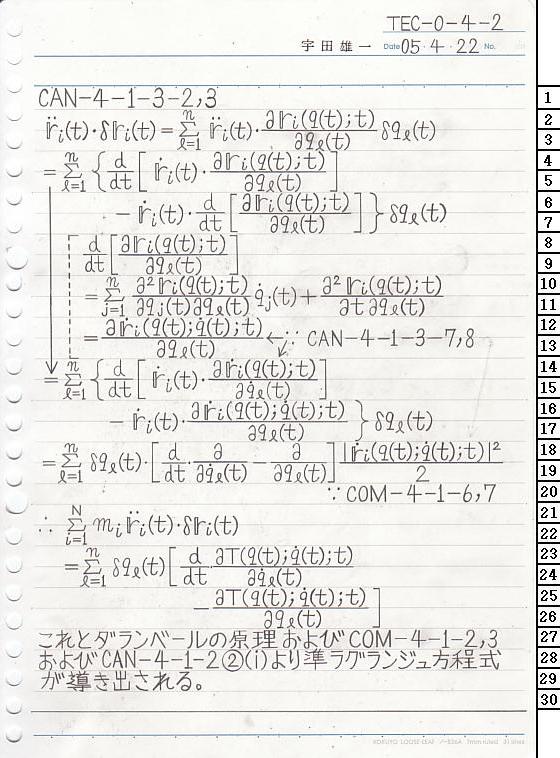 TEC-0-4-2
宇田雄一 Date 05・4・22 No.
CAN-4-1-3-2,3
r̈ᵢ(t)·δrᵢ(t) = Σ_{ℓ=1}^{n} r̈ᵢ(t)·∂rᵢ(q(t);t)/∂q_ℓ(t) δq_ℓ(t)
= Σ_{ℓ=1}^{n} { d/dt [ ṙᵢ(t)·∂rᵢ(q(t);t)/∂q_ℓ(t) ]
- ṙᵢ(t)·d/dt [ ∂rᵢ(q(t);t)/∂q_ℓ(t) ] } δq_ℓ(t)
d/dt [ ∂rᵢ(q(t);t)/∂q_ℓ(t) ]
= Σ_{j=1}^{n} ∂²rᵢ(q(t);t)/∂q_j(t)∂q_ℓ(t) q̇_j(t) + ∂²rᵢ(q(t);t)/∂t∂q_ℓ(t)
= ∂ṙᵢ(q(t);q̇(t);t)/∂q_ℓ(t) ←∵ CAN-4-1-3-7,8
= Σ_{ℓ=1}^{n} { d/dt [ ṙᵢ(t)·∂ṙᵢ(q(t);q̇(t);t)/∂q̇_ℓ(t) ]
- ṙᵢ(t)·∂ṙᵢ(q(t);q̇(t);t)/∂q_ℓ(t) } δq_ℓ(t)
= Σ_{ℓ=1}^{n} δq_ℓ(t)·[ d/dt ∂/∂q̇_ℓ(t) - ∂/∂q_ℓ(t) ] |ṙᵢ(q(t);q̇(t);t)|²/2
∵ COM-4-1-6,7
∴ Σ_{i=1}^{N} mᵢr̈ᵢ(t)·δrᵢ(t)
= Σ_{ℓ=1}^{n} δq_ℓ(t) [ d/dt ∂T(q(t);q̇(t);t)/∂q̇_ℓ(t)
- ∂T(q(t);q̇(t);t)/∂q_ℓ(t) ]
これとダランベールの原理およびCOM-4-1-2,3
およびCAN-4-1-2②(i)より準ラグランジュ方程式
が導き出される。
KOKUYO LOOSE-LEAF ノ-836A 7mm ruled 31 lines
1
2
3
4
5
6
7
8
9
10
11
12
13
14
15
16
17
18
19
20
21
22
23
24
25
26
27
28
29
30